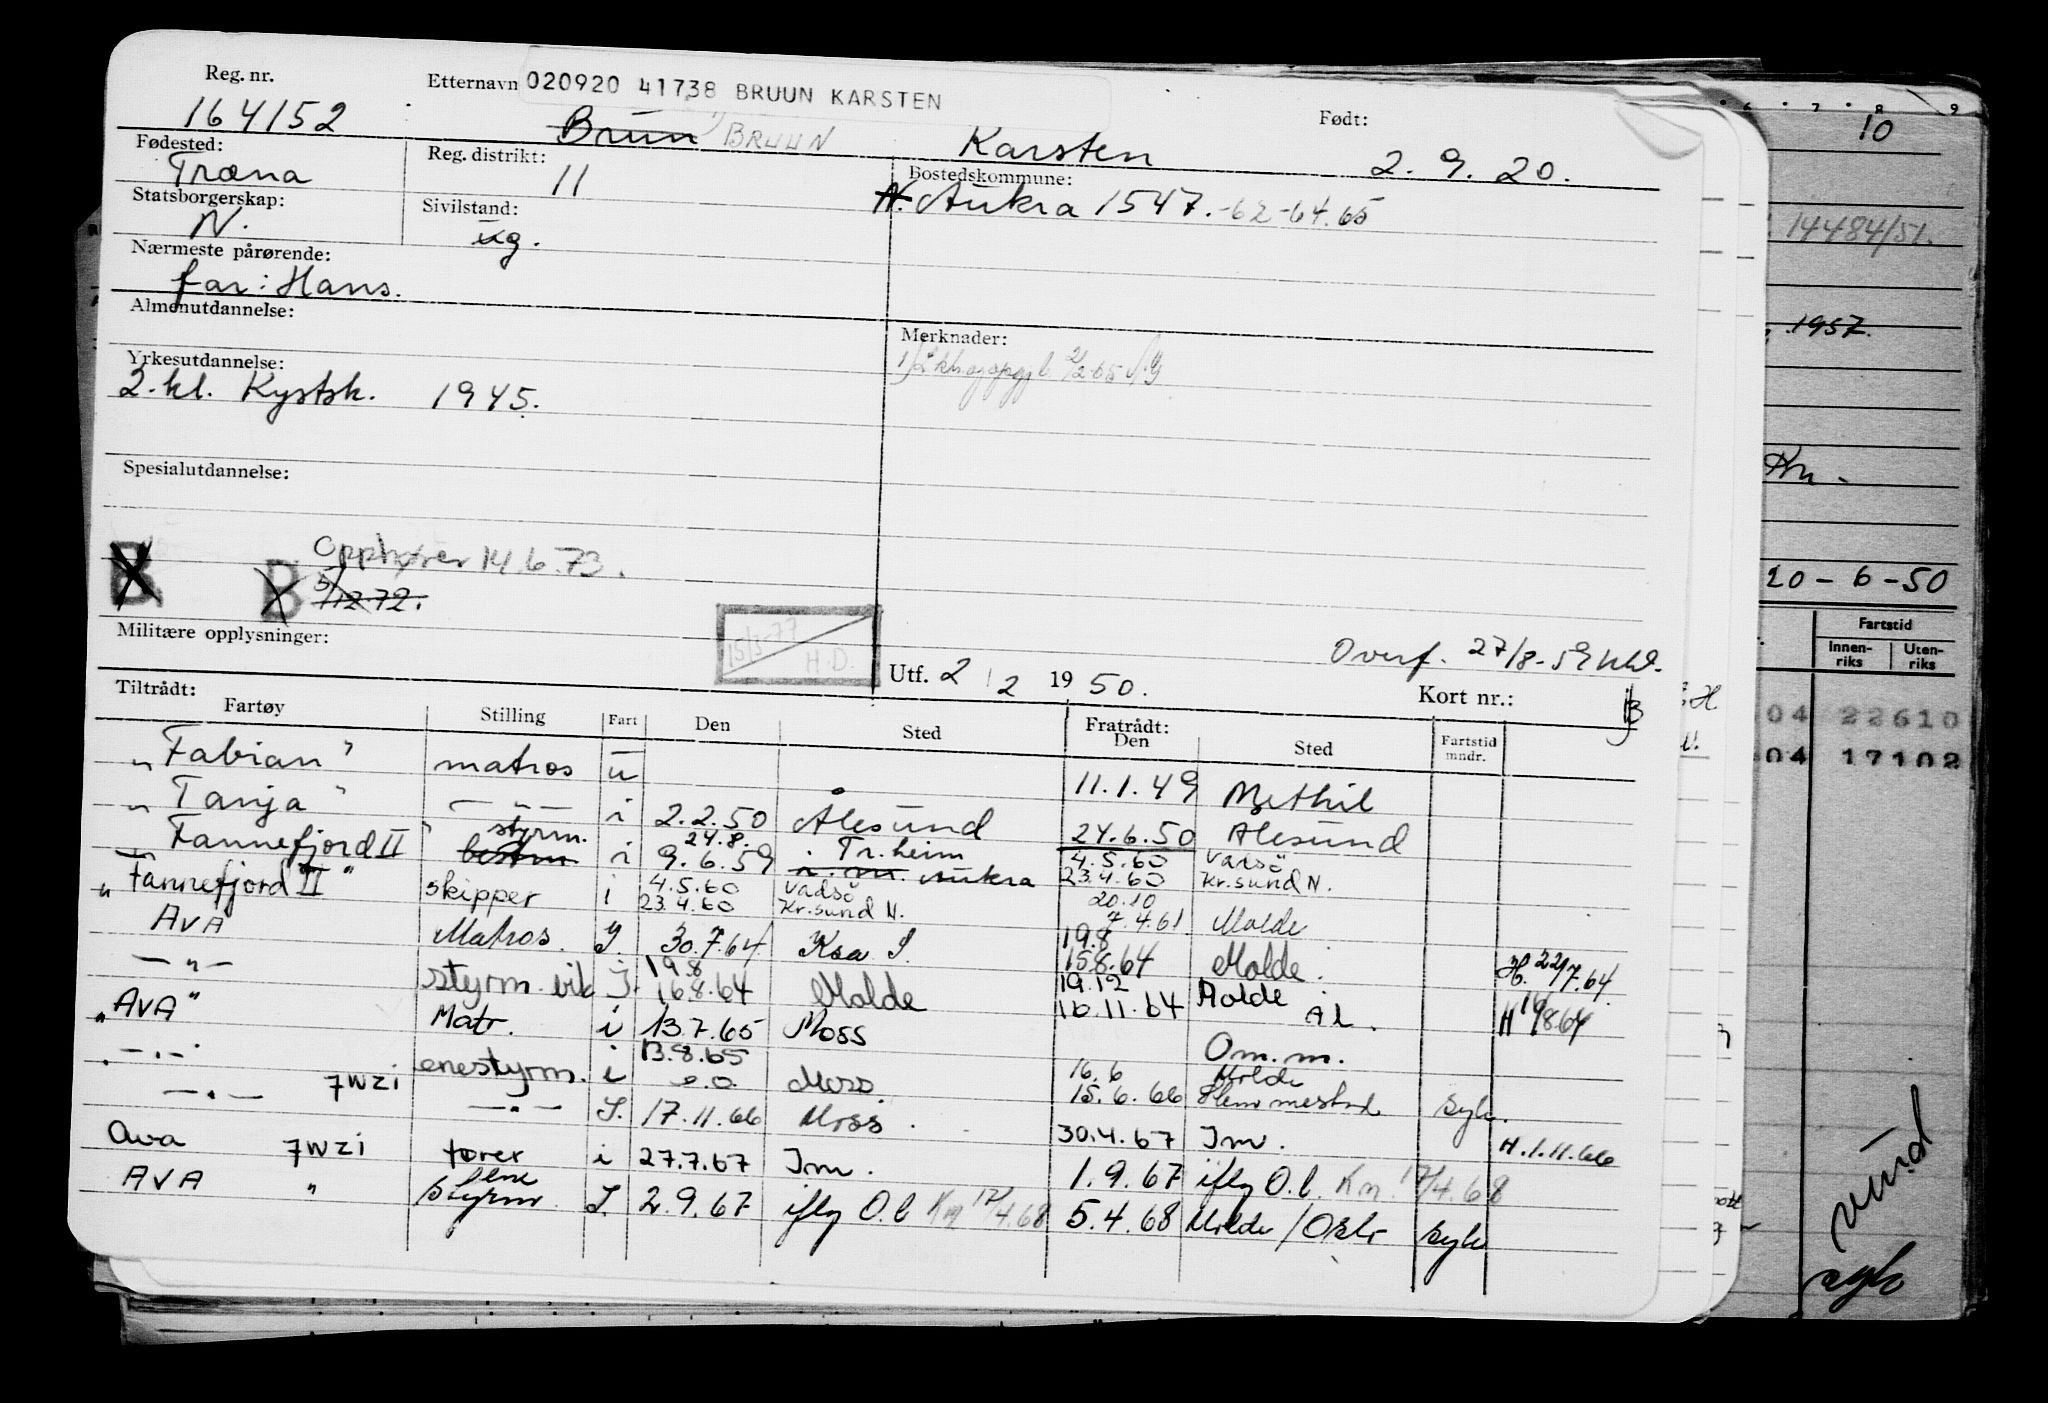 Reg. nr. Etternavn 020920 41738 BRUUN KARSTEN Født:
164152 Brun 1) BRUUN Karsten 2. 9. 20.
Fødested: Reg. distrikt: Bostedskommune:
Træna 11 N. Aukra 1547. -62 -64. 65
Statsborgerskap: Sivilstand:
N. ug.
Nærmeste pårørende:
far: Hans.
Almenutdannelse: Merknader:
Yrkesutdannelse:
2. kl. Kystsk. 1945.
Spesialutdannelse:
B B Opphører 14.6.73.
5/12-72.
15/3-77
H.D.
Militære opplysninger:
Overf. 27/8-59
Utf. 2/2 1950. Kort nr.:
Tiltrådt: Fratrådt:
Fartøy Stilling Fart Den Sted Den Sted Fartstid mndr.
"Fabian" matros u 11.1.49 Methil
"Tanja" — " — i 2.2.50 Ålesund 24.6.50 Ålesund
"Fannefjord II" styrm. bestm i 24.8. 9.6.59 Tr.heim Aukra 4.5.60 23.4.60 Vadsö Kr.sund N.
"Fannefjord II" skipper i 4.5.60 23.4.60 Vadsö Kr.sund N. 20.10 7.4.61 Molde
AVA Matros. 30.7.64 19.8 15.8.64 Molde. H. 22/7.64
— " — styrm. vik 19.8 16.8.64 Molde 19.12 16.11.64 Molde Ål. H 19/8 64
"AVA" Matr. i 13.7.65 Moss Om.m.
— " — enestyrm. i 13.8.65 Moss. 16.6 15.6.66 Molde Slemmestad syk.
— " — 7WZI — " — I. 17.11.66 Moss. 30.4.67 Im. H. 1.11.66
Ava 7WZI fører i 27.7.67 Im. 1.9.67 ifly O.l. Kn. 17/4.68
AVA " Ene styrm. I. 2.9.67 ifly O.l Kn 17/4.68 5.4.68 Molde/Oslo syk
6 7 8 9
10
14484/51.
1957.
Kn.
20-6-50
Fartstid
Innenriks Utenriks
04 22610
04 17102
syk